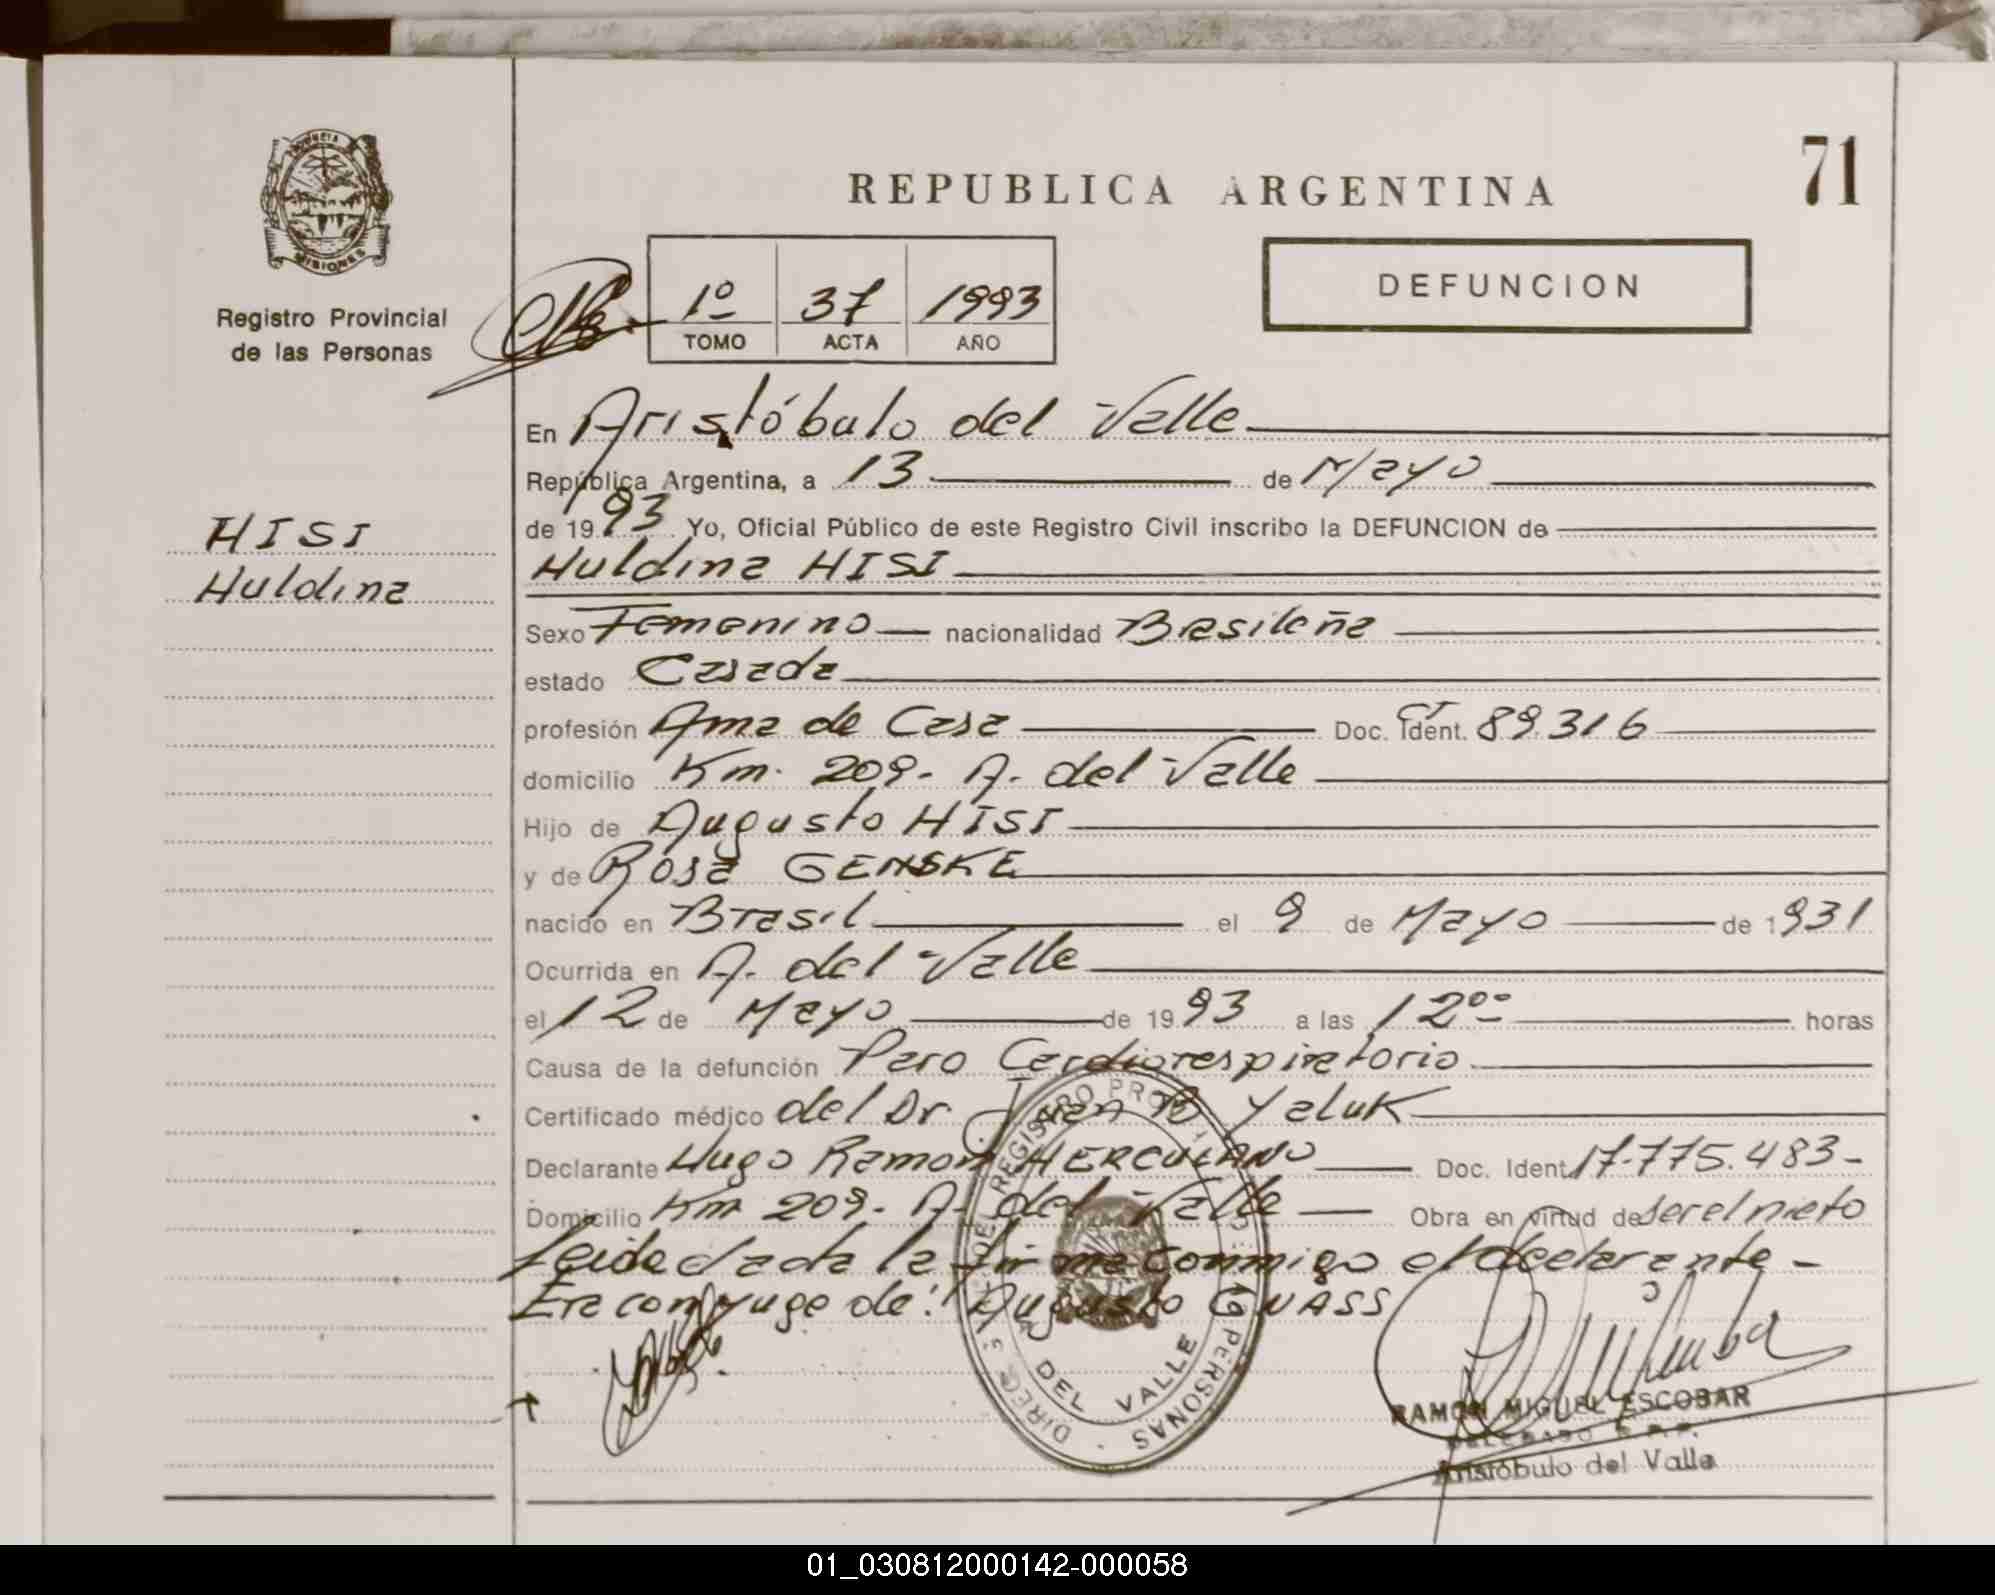 PROVINCIA
MISIONES
Registro Provincial
de las Personas
HISI
Huldina
71
REPUBLICA ARGENTINA
1º 37 1993
TOMO ACTA AÑO
DEFUNCION
En Aristóbulo del Valle
República Argentina, a 13 de Mayo
de 1993 Yo, Oficial Público de este Registro Civil inscribo la DEFUNCION de
Huldina HISI
Sexo Femenino nacionalidad Brasileña
estado Casada
profesión Ama de Casa Doc. Ident. CI 89.316
domicilio Km. 209. A. del Valle
Hijo de Augusto HISI
y de Rosa GENSKE
nacido en Brasil el 9 de Mayo de 1931
Ocurrida en A. del Valle
el 12 de Mayo de 1993 a las 12⁰⁰ horas
Causa de la defunción Paro Cardiorespiratorio
Certificado médico del Dr. Juan B Yaluk
Declarante Hugo Ramon HERCULANO Doc. Ident. 17.775.483-
Domicilio Km 209. A. del Valle Obra en virtud de ser el nieto
Leida el acta la firma conmigo el declarante-
Era conyuge de: Augusto GNASS
REGISTRO PROV DE LAS PERSONAS
DEL VALLE
RAMON MIGUEL ESCOBAR
DELEGADO R.P.P.
Aristóbulo del Valle
01_030812000142-000058